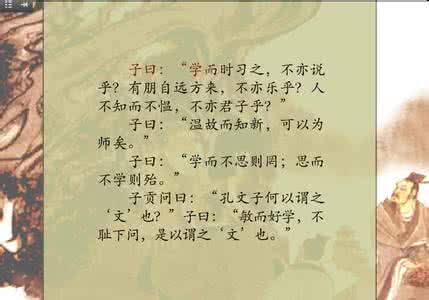 子曰：“学而时习之，不亦说
乎？有朋自远方来，不亦乐乎？人
不知而不愠，不亦君子乎？”
子曰：“温故而知新，可以为
师矣。”
子曰：“学而不思则罔；思而
不学则殆。”
子贡问曰：“孔文子何以谓之
‘文’也？”子曰：“敏而好学，不
耻下问，是以谓之‘文’也。”